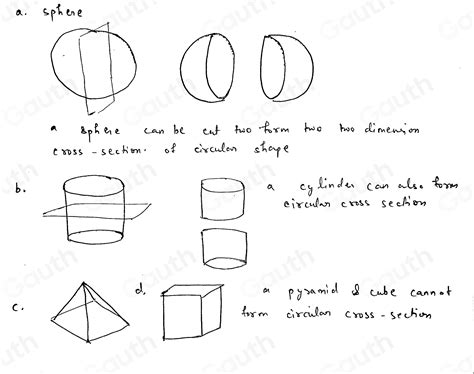 a. sphere
a sphere can be cut two form two two dimension
cross-section. of circular shape
b.
a cylinder can also form
circular cross section
c.
d.
a pyramid & cube cannot
form circular cross-section
Gauth